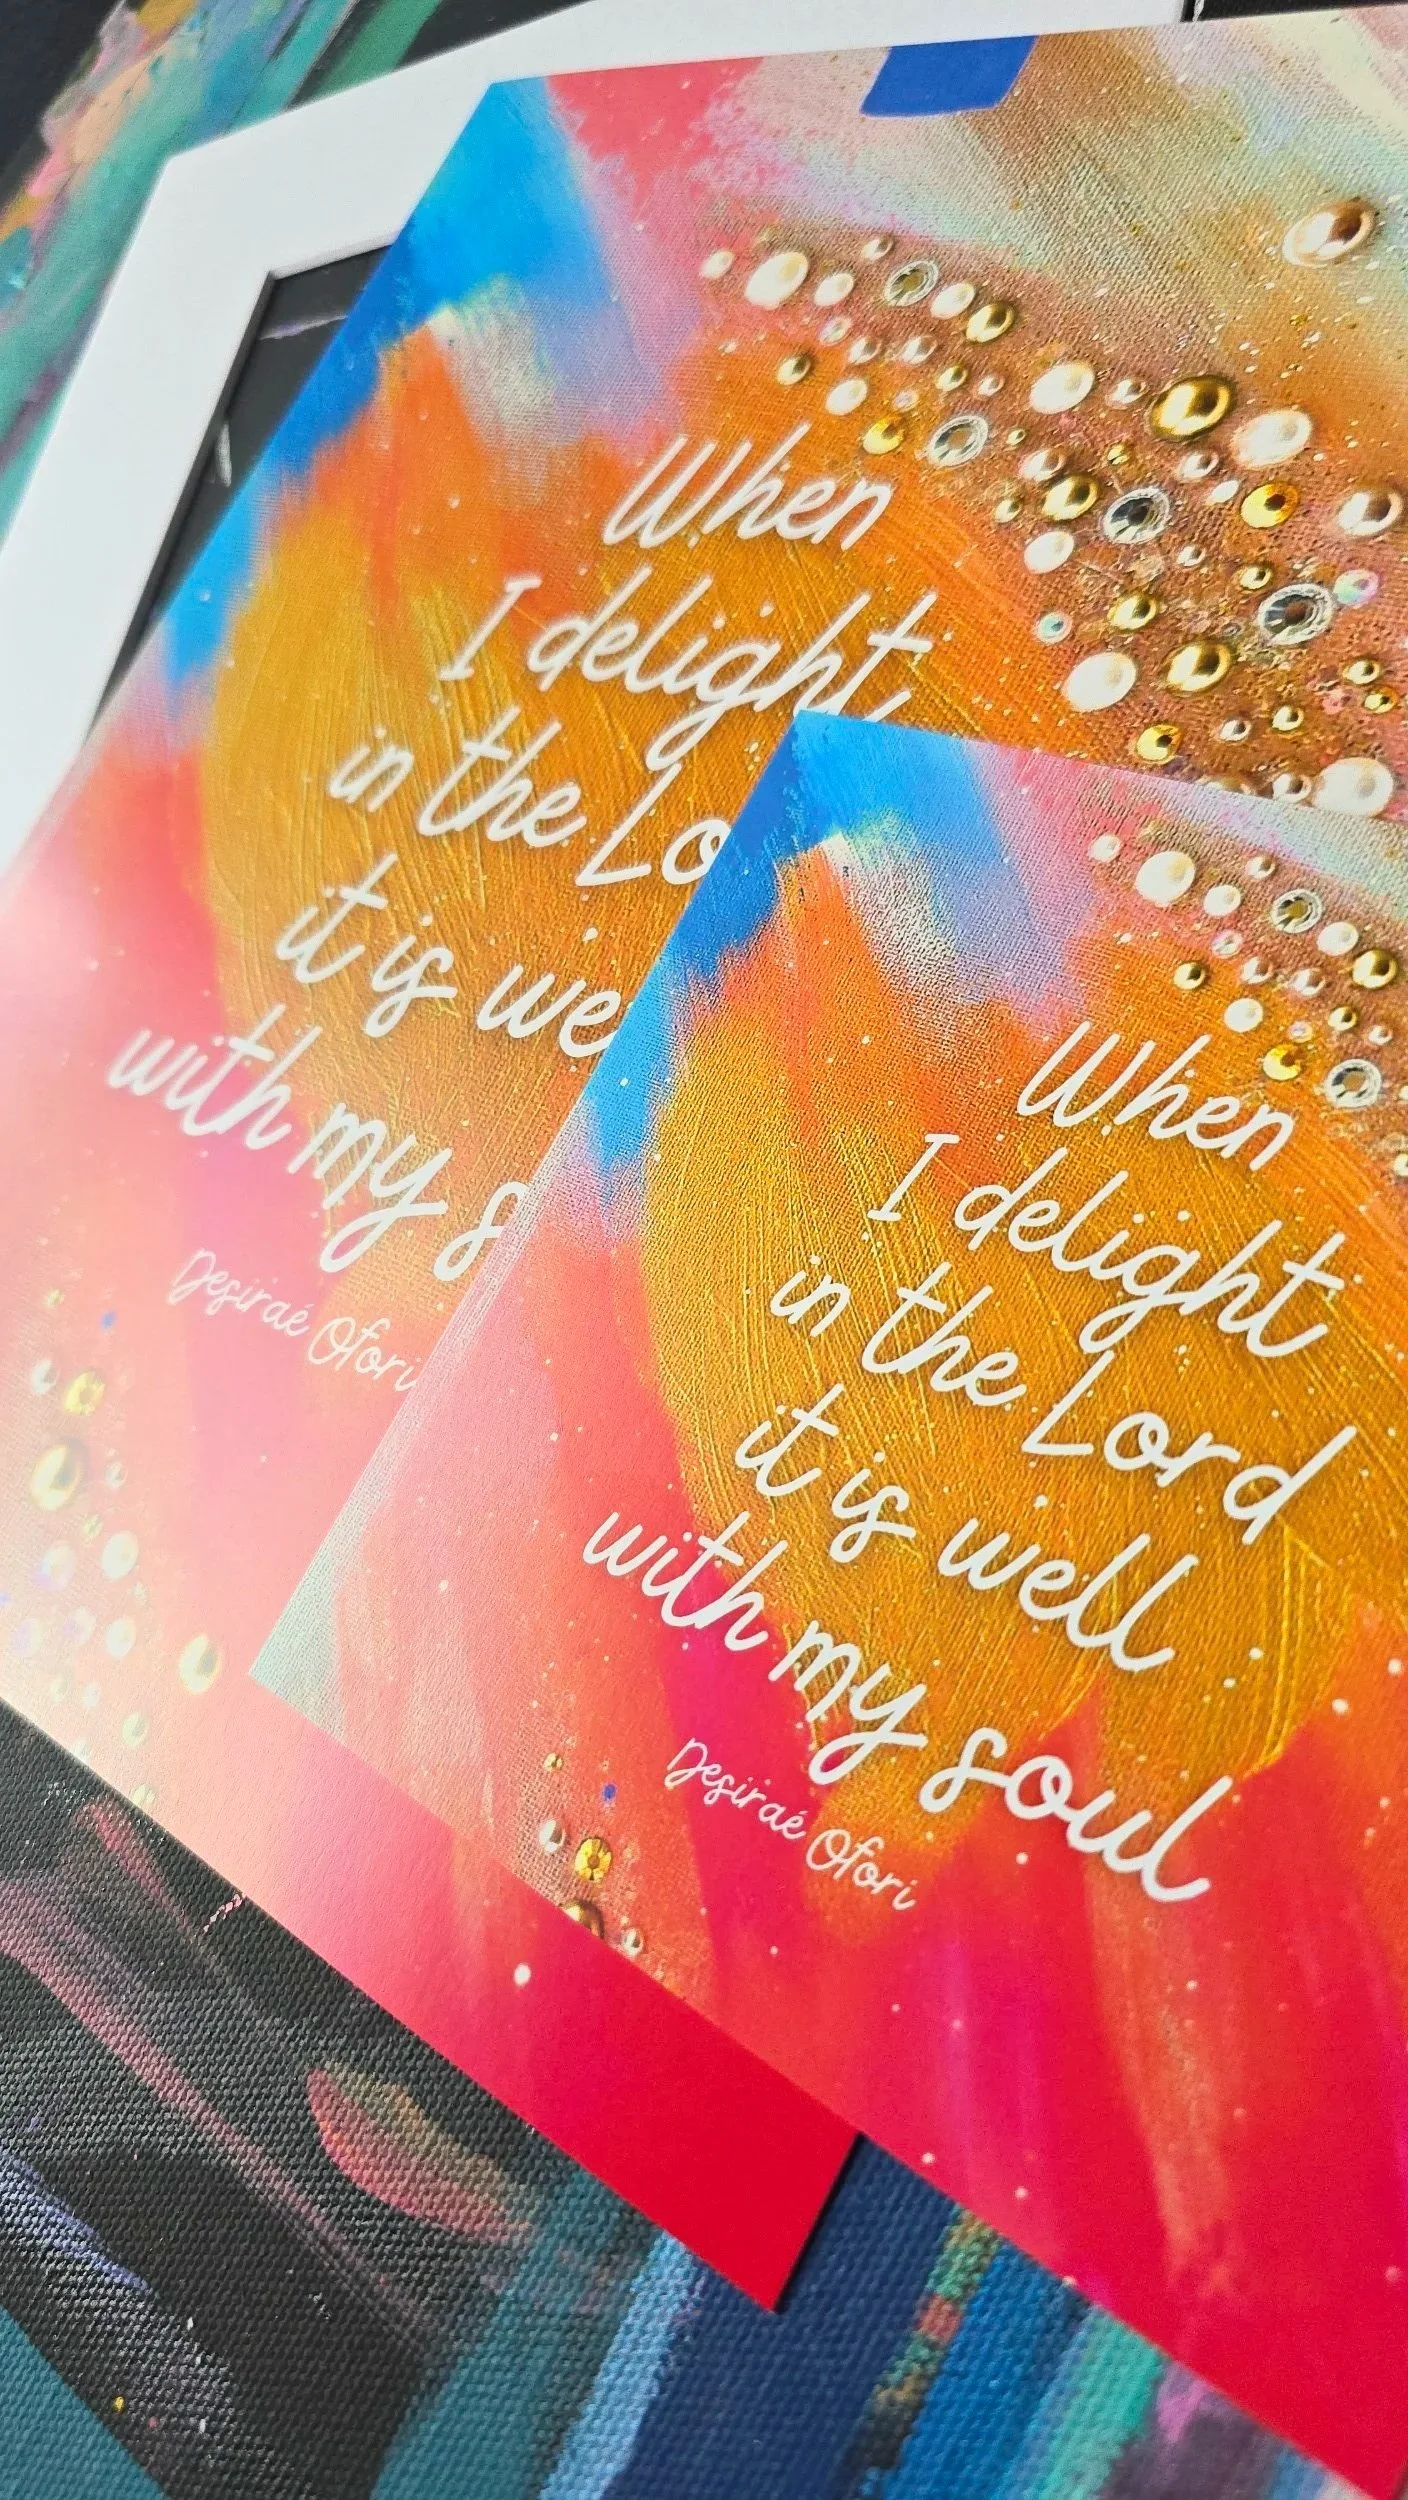 When
I delight
in the Lo
it is we
with my s
Desiraé Ofori
When
I delight
in the Lord
it is well
with my soul
Desiraé Ofori